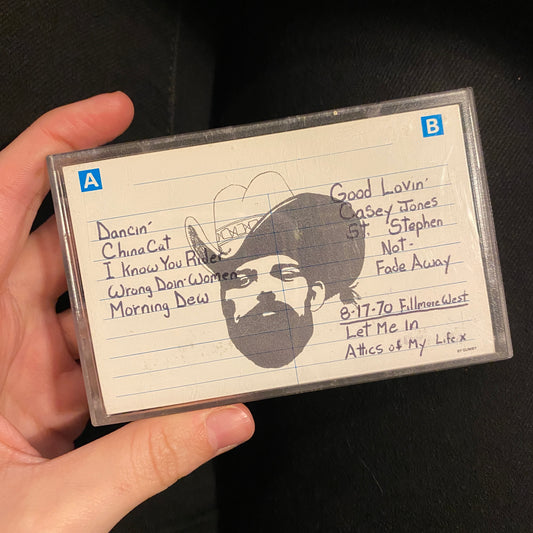 A
Dancin'
China Cat
I Know You Rider
Wrong Doin' Women
Morning Dew
B
Good Lovin'
Casey Jones
St. Stephen
Not-
Fade Away
8-17-70 Fillmore West
Let Me In
Attics of My Life x